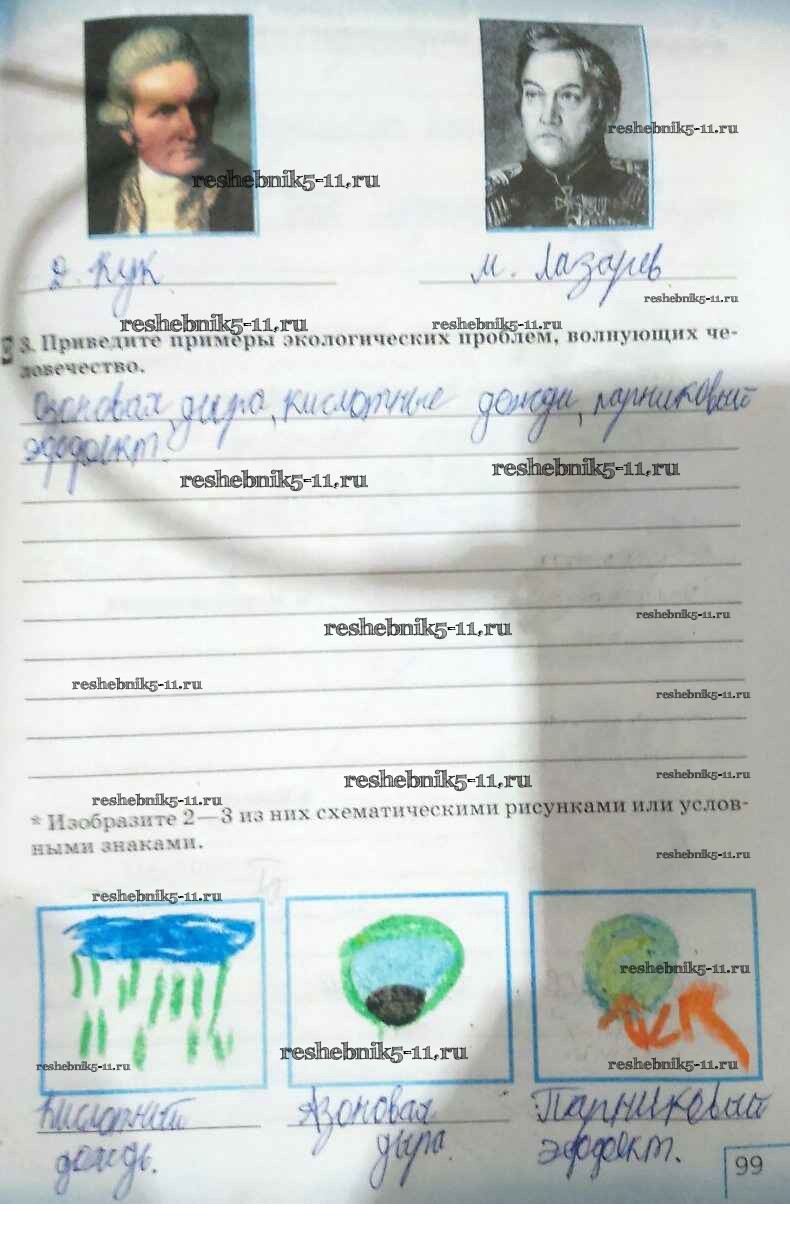 reshebnik5-11.ru
reshebnik5-11.ru
Д. Кук
М. Лазарев
reshebnik5-11.ru
reshebnik5-11.ru
reshebnik5-11.ru
3. Приведите примеры экологических проблем, волнующих че-
ловечество.
Озоновая дыра, кислотные дожди, парниковый
эффект.
reshebnik5-11.ru
reshebnik5-11.ru
reshebnik5-11.ru
reshebnik5-11.ru
reshebnik5-11.ru
reshebnik5-11.ru
reshebnik5-11.ru
reshebnik5-11.ru
reshebnik5-11.ru
* Изобразите 2—3 из них схематическими рисунками или услов-
ными знаками.
reshebnik5-11.ru
reshebnik5-11.ru
reshebnik5-11.ru
reshebnik5-11.ru
reshebnik5-11.ru
reshebnik5-11.ru
Кислотный
дождь.
Азоновая
дыра.
Парниковый
эффект.
99